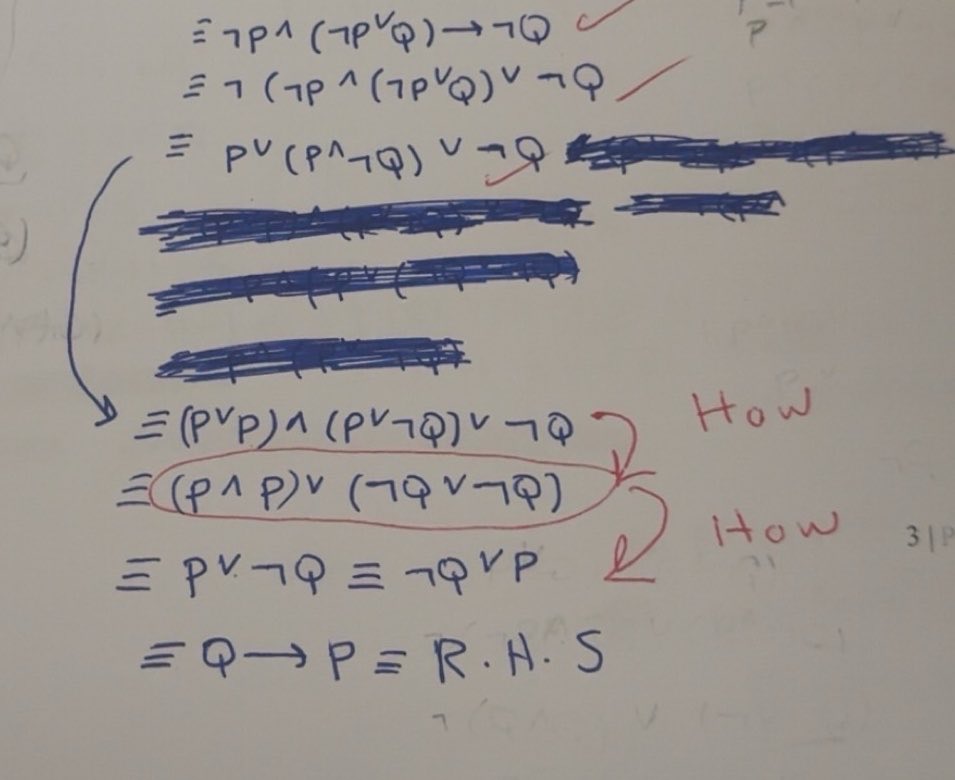 ≡ ¬P ∧ (¬P ∨ Q) → ¬Q
≡ ¬ (¬P ∧ (¬P ∨ Q) ∨ ¬Q
≡ P ∨ (P ∧ ¬Q) ∨ ¬Q
≡ (P ∨ P) ∧ (P ∨ ¬Q) ∨ ¬Q
How
≡ (P ∧ P) ∨ (¬Q ∨ ¬Q)
How
≡ P ∨ ¬Q ≡ ¬Q ∨ P
≡ Q → P ≡ R.H.S